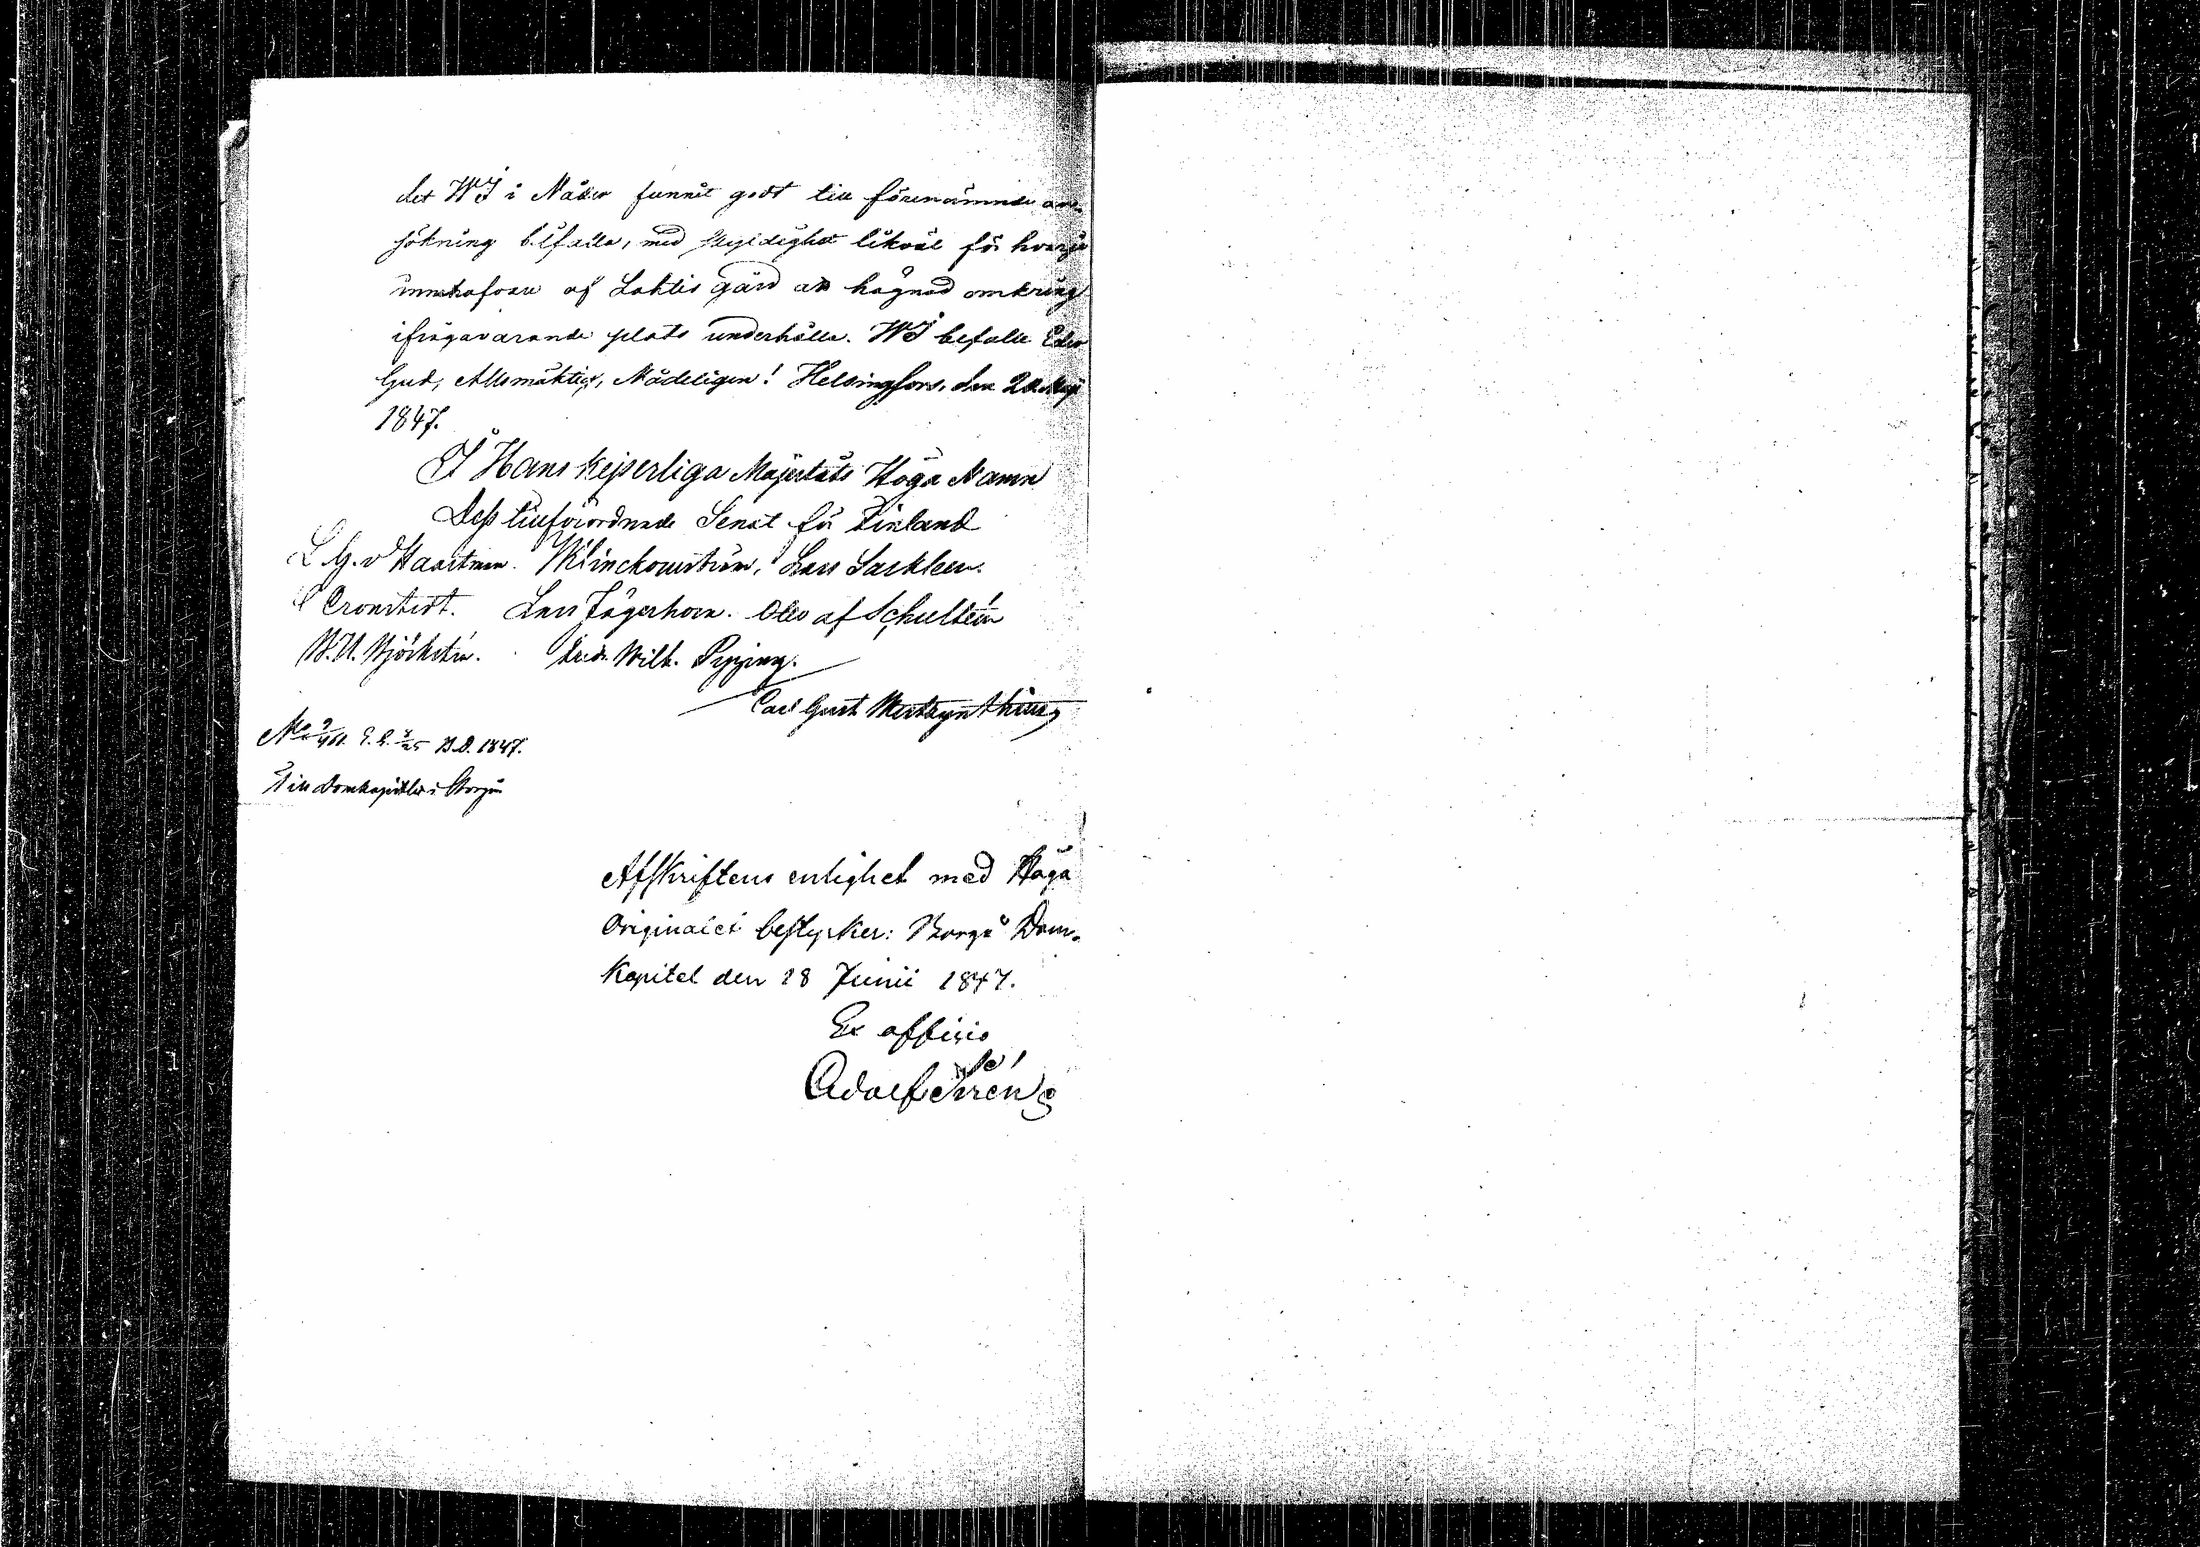 det WI i Nåder funnit godt till förenämnde an-
sökning bifalla, med skyldighet likväl för hvarje
innehafvare af Lahtis gård att hägnad omkring
ifrågavarande plats underhålla. WI befalle Eder
Gud, Allsmäktig, Nådeligen! Helsingfors, den 20 Maji
1847.
I Hans Kejserliga Majestäts Höga Namn
Dess tillförordnade Senat för Finland
L. G. v Haartman. Klinckowström. Lars Sackleen.
C Cronstedt. Lars Jägerhorn. Otto af Schultén
B. U. Björkstén. Fredr. Wilh. Pipping.
Carl Gust. Mortzyn
E. E. B.D. 1847.
Till Domkapitlet i Borgå
Afskriftens enlighet med Höga
Originalet bestyrker: Borgå Dom-
kapitel den 18 Junii 1847.
Ex officio
Adolf